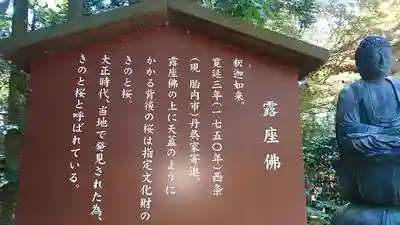 露座佛
釈迦如来。
寛延三年(一七五〇年)西条
(現 胎内市)丹呉家寄進。
露座佛の上に天蓋のように
かかる背後の桜は指定文化財の
きのと桜。
大正時代、当地で発見された為、
きのと桜と呼ばれている。